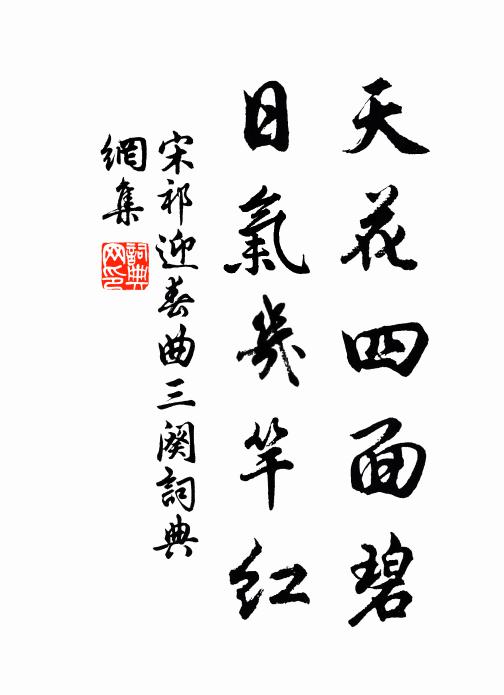 天花四面碧
日氣幾竿紅
宋祁迎春曲三闋詞典
網集
詞典
网印